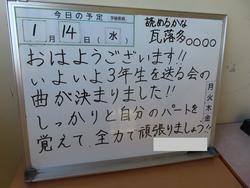 今日の予定
1月14日(水)
読めるかな
瓦落多○○○○
おはようございます!!
いよいよ3年生を送る会の
曲が決まりました!!
しっかりと自分のパートを
覚えて、全力で頑張りましょう!!
月
火
木
金